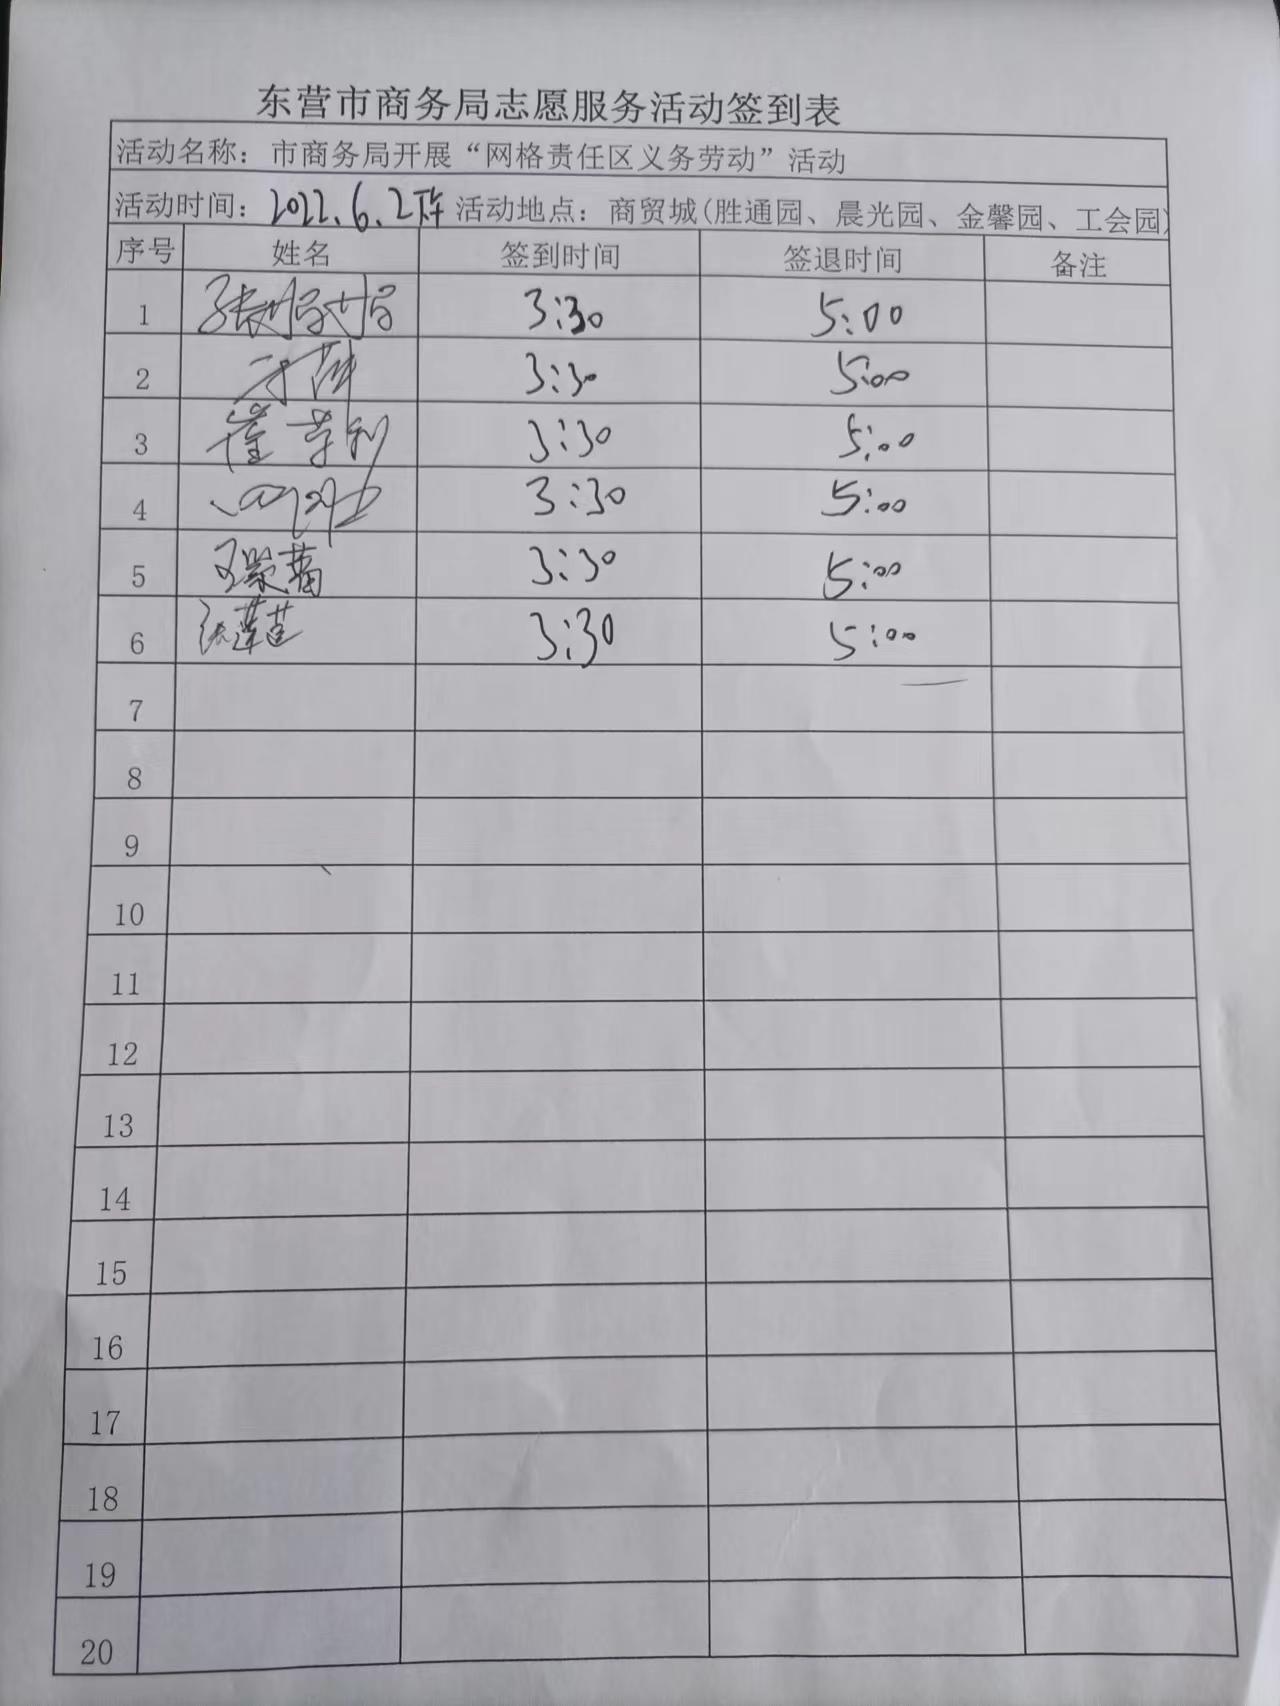 东营市商务局志愿服务活动签到表
活动名称：市商务局开展“网格责任区义务劳动”活动
活动时间：2022.6.2下午 活动地点：商贸城(胜通园、晨光园、金馨园、工会园)
序号 姓名 签到时间 签退时间 备注
1 3:30 5:00
2 3:30 5:00
3 3:30 5:00
4 3:30 5:00
5 3:30 5:00
6 3:30 5:00
7
8
9
10
11
12
13
14
15
16
17
18
19
20